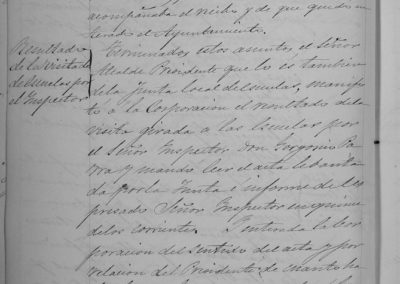 acompañaba el recibo y de que quedó en
terado el Ayuntamiento.
Resultado
de la visita
de Escuelas por
el Inspector
Terminados estos asuntos el Señor
Alcalde Presidente que lo es tambien
de la junta local de Escuelas, manifes
tó a la Corporacion el resultado de la
visita girada a las Escuelas por
el Señor Inspector don Gregorio
y mandó leer el acta levanta
da por la Junta é informe del es
presado Señor Inspector en quince
de los corrientes. Enterada la Cor
poracion del sentido del acta y por
relacion del Presidente de cuanto ha